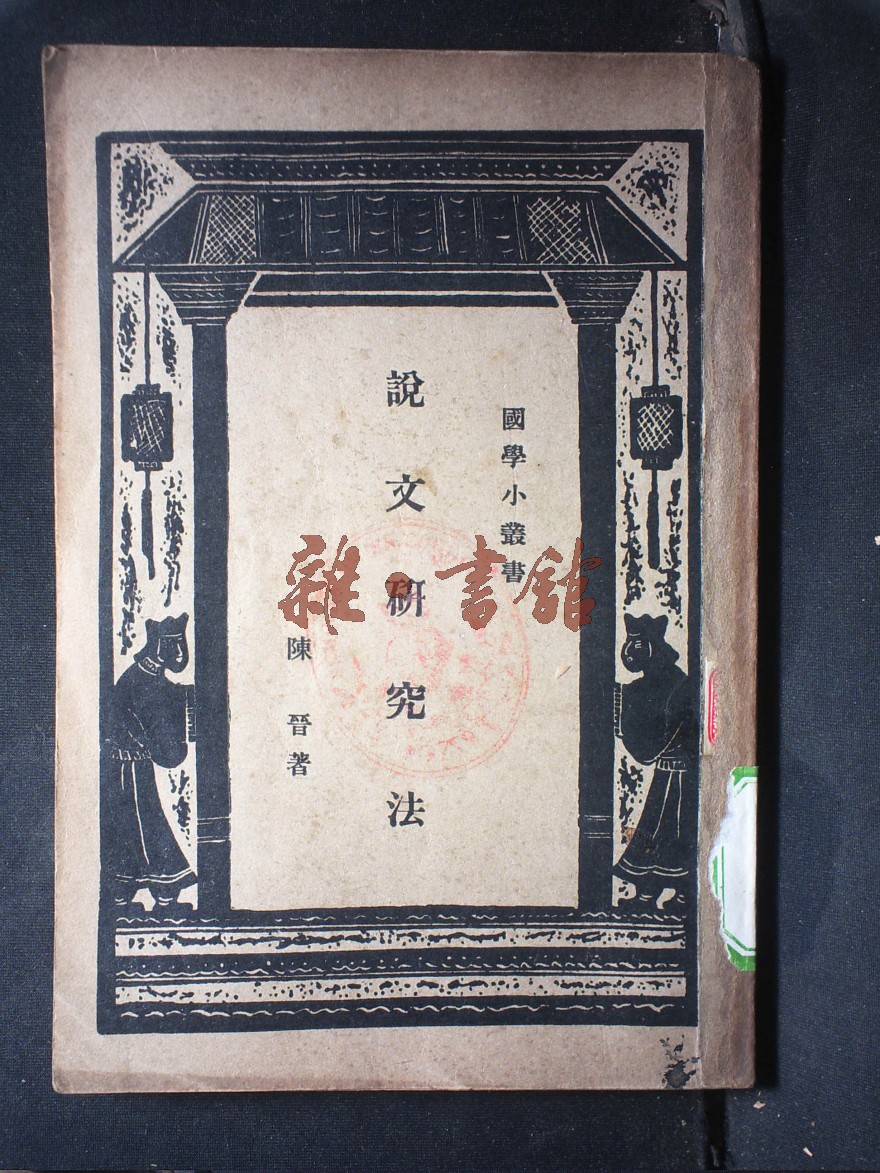 國學小叢書
說文研究法
陳晉著
雜·書館